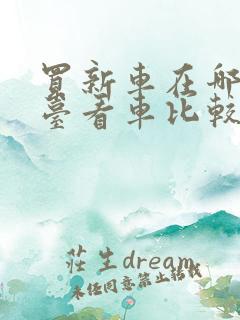 買新車在哪
臺看車比較
莊生dream
未经同意禁止转载